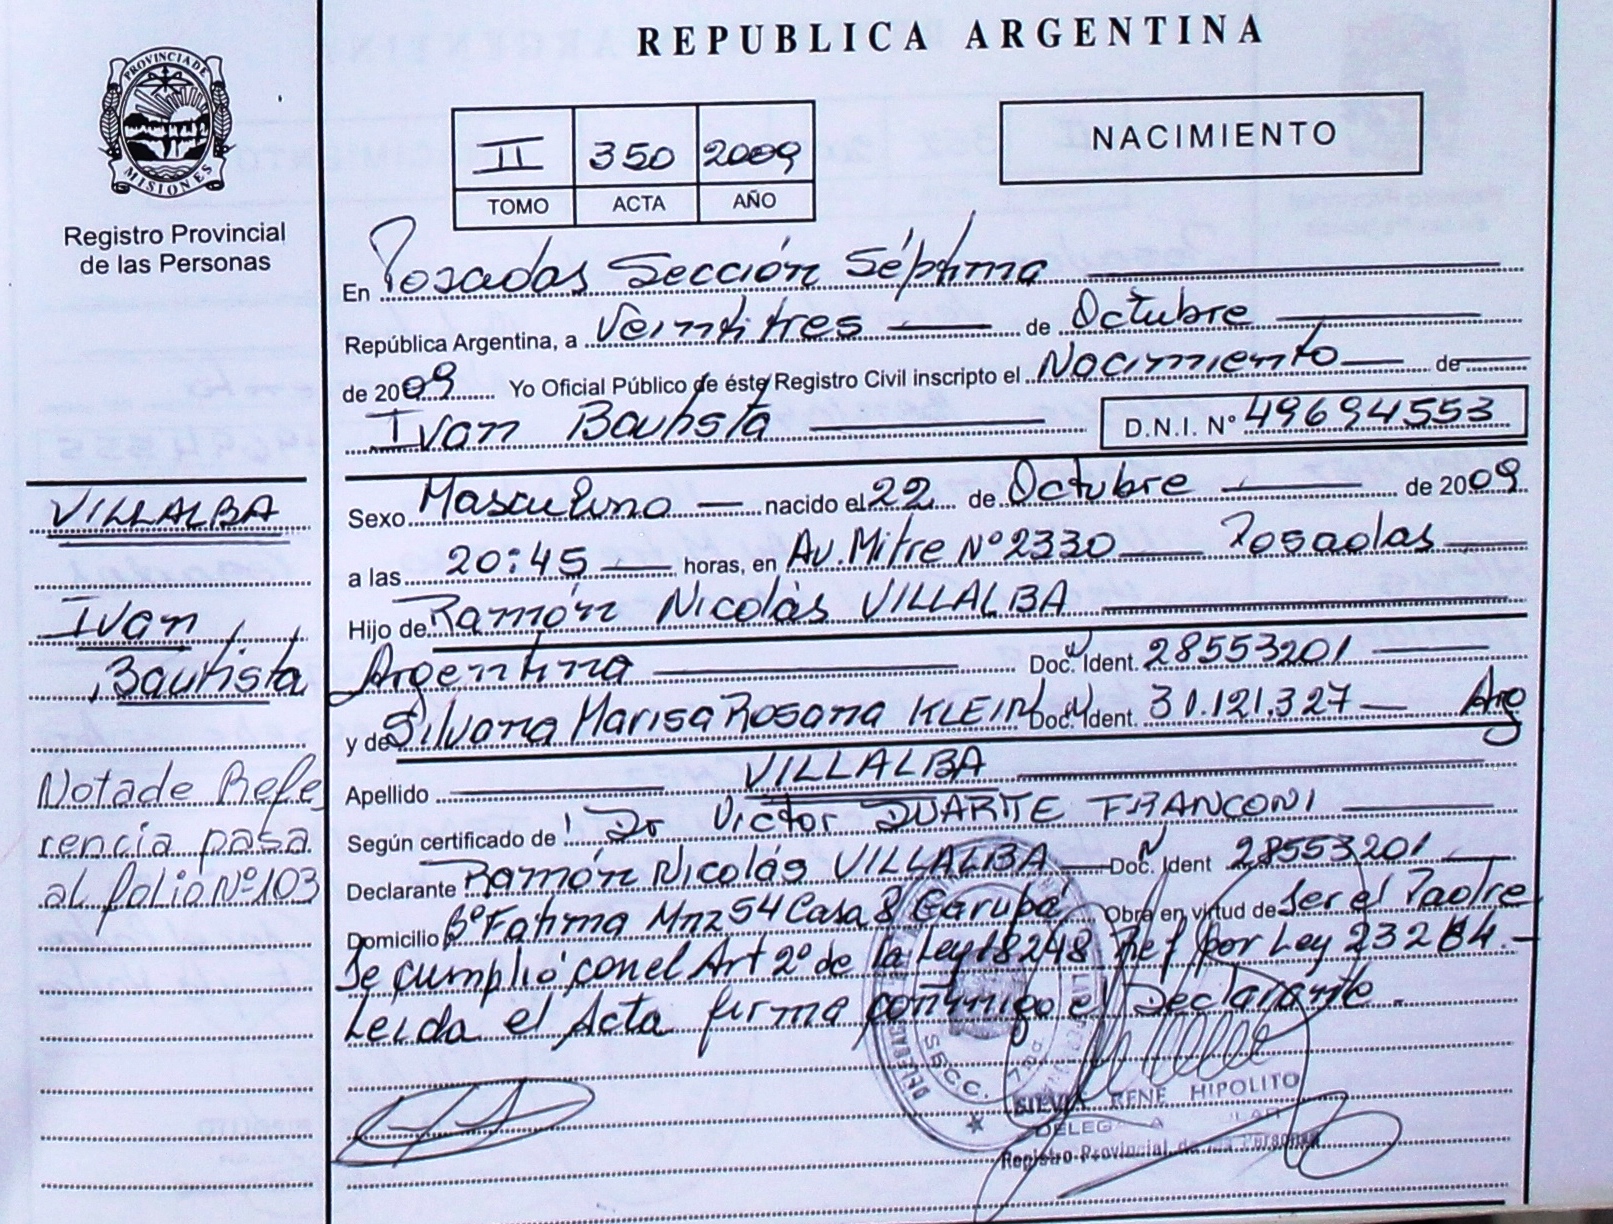 REPUBLICA ARGENTINA
PROVINCIA DE
MISIONES
Registro Provincial
de las Personas
II 350 2009
TOMO ACTA AÑO
NACIMIENTO
En Posadas Sección Séptima
República Argentina, a Veintitres de Octubre
de 2009 Yo Oficial Público de éste Registro Civil inscripto el Nacimiento de
Ivan Bautista D.N.I. N° 49694553
Sexo Masculino nacido el 22 de Octubre de 2009
a las 20:45 horas, en Av. Mitre N° 2330 Posadas
Hijo de Ramón Nicolás VILLALBA
Argentina Doc. N Ident. 28553201
y de Silvana Marisa Rosana KLEIN Doc. N Ident. 30.121.327 Arg
Apellido VILLALBA
Según certificado de Dr Victor DUARTE FRANCONI
Declarante Ramón Nicolás VILLALBA Doc. N Ident 28553201
Domicilio B° Fatima Mnz 54 Casa 8 Garupá Obra en virtud de Ser el Padre
Se cumplió con el Art 2° de la Ley 18248 Ref por Ley 23264.-
Leida el Acta firma conmigo el Declarante.
VILLALBA
Ivan
Bautista
Nota de Refe
rencia pasa
al folio N° 103
SECC. 7
SILVIA RENE HIPOLITO
Registro Provincial de las Personas